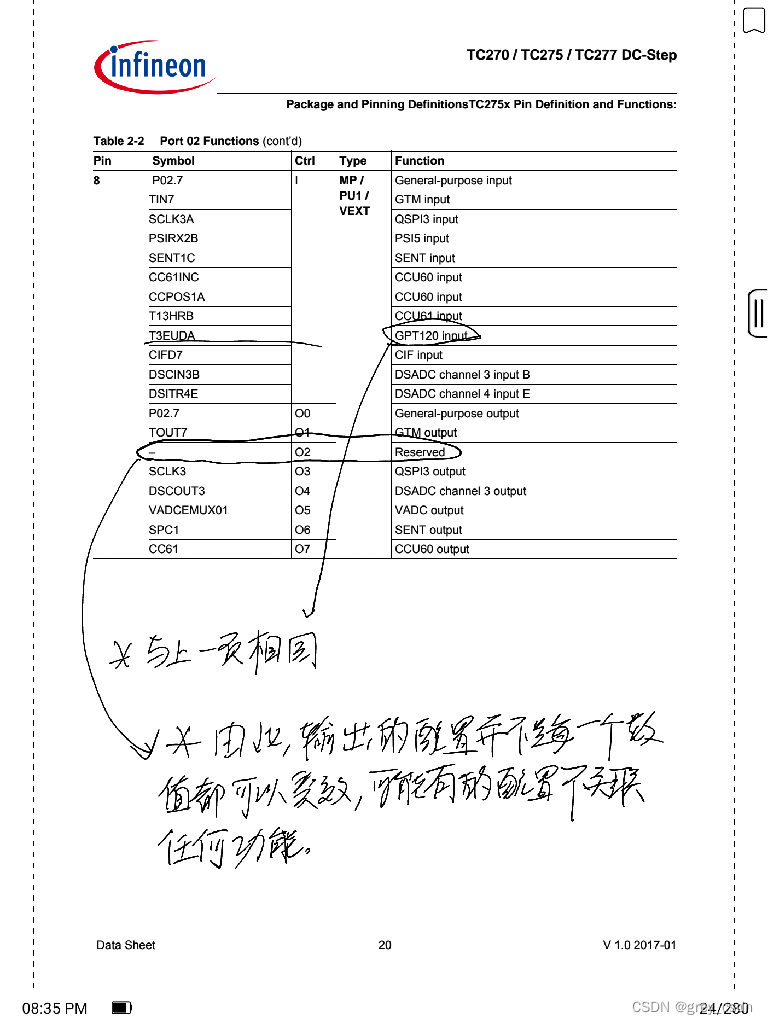 infineon
TC270 / TC275 / TC277 DC-Step
Package and Pinning DefinitionsTC275x Pin Definition and Functions:
Table 2-2 Port 02 Functions (cont'd)
Pin Symbol Ctrl Type Function
8 P02.7 I MP / General-purpose input
TIN7 PU1 / GTM input
SCLK3A VEXT QSPI3 input
PSIRX2B PSI5 input
SENT1C SENT input
CC61INC CCU60 input
CCPOS1A CCU60 input
T13HRB CCU61 input
T3EUDA GPT120 input
CIFD7 CIF input
DSCIN3B DSADC channel 3 input B
DSITR4E DSADC channel 4 input E
P02.7 O0 General-purpose output
TOUT7 O1 GTM output
– O2 Reserved
SCLK3 O3 QSPI3 output
DSCOUT3 O4 DSADC channel 3 output
VADCEMUX01 O5 VADC output
SPC1 O6 SENT output
CC61 O7 CCU60 output
与上一页相同
由此,输出的配置并不是每一个数
值都可以生效,可能有的配置不关联
任何功能。
Data Sheet 20 V 1.0 2017-01
08:35 PM 24/280
CSDN